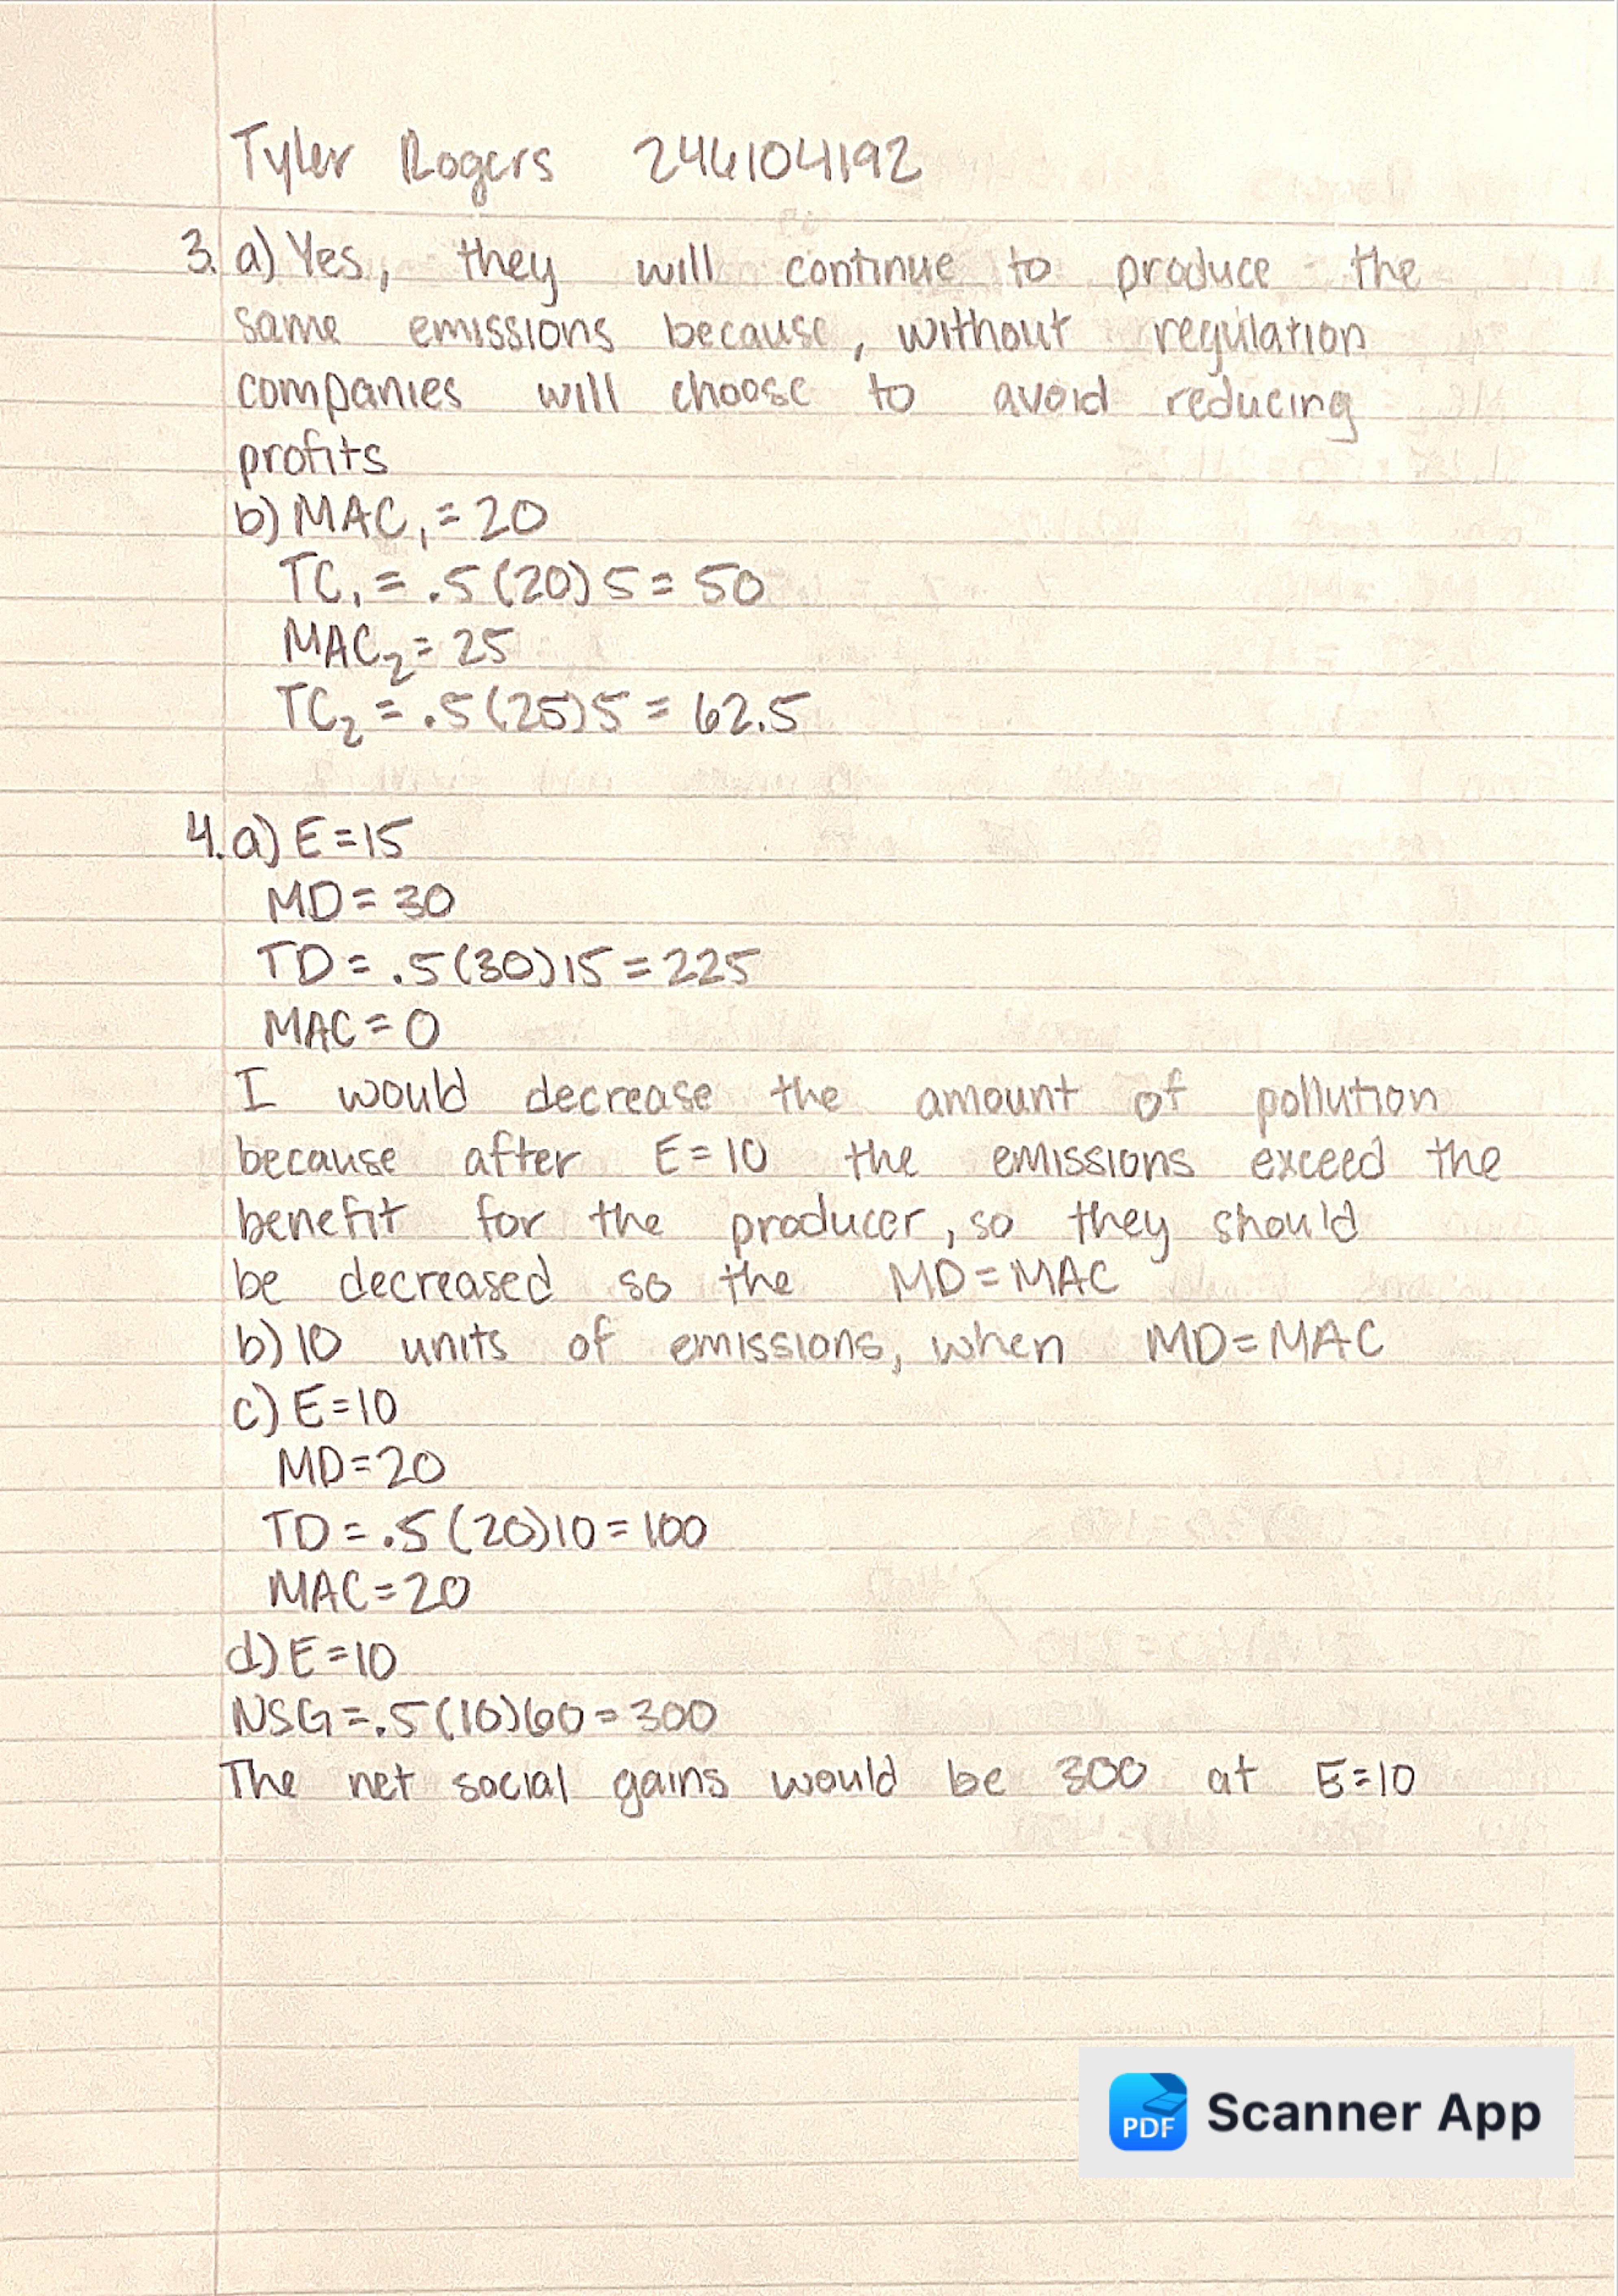 Tyler Rogers 246104192
3. a) Yes, they will continue to produce the
same emissions because, without regulation
companies will choose to avoid reducing
profits
b) MAC₁ = 20
TC₁ = .5(20)5 = 50
MAC₂ = 25
TC₂ = .5(25)5 = 62.5
4. a) E=15
MD = 30
TD = .5(30)15 = 225
MAC = 0
I would decrease the amount of pollution
because after E=10 the emissions exceed the
benefit for the producer, so they should
be decreased so the MD=MAC
b) 10 units of emissions, when MD=MAC
c) E=10
MD=20
TD = .5(20)10 = 100
MAC=20
d) E=10
NSG = .5(10)60 = 300
The net social gains would be 300 at E=10
PDF Scanner App